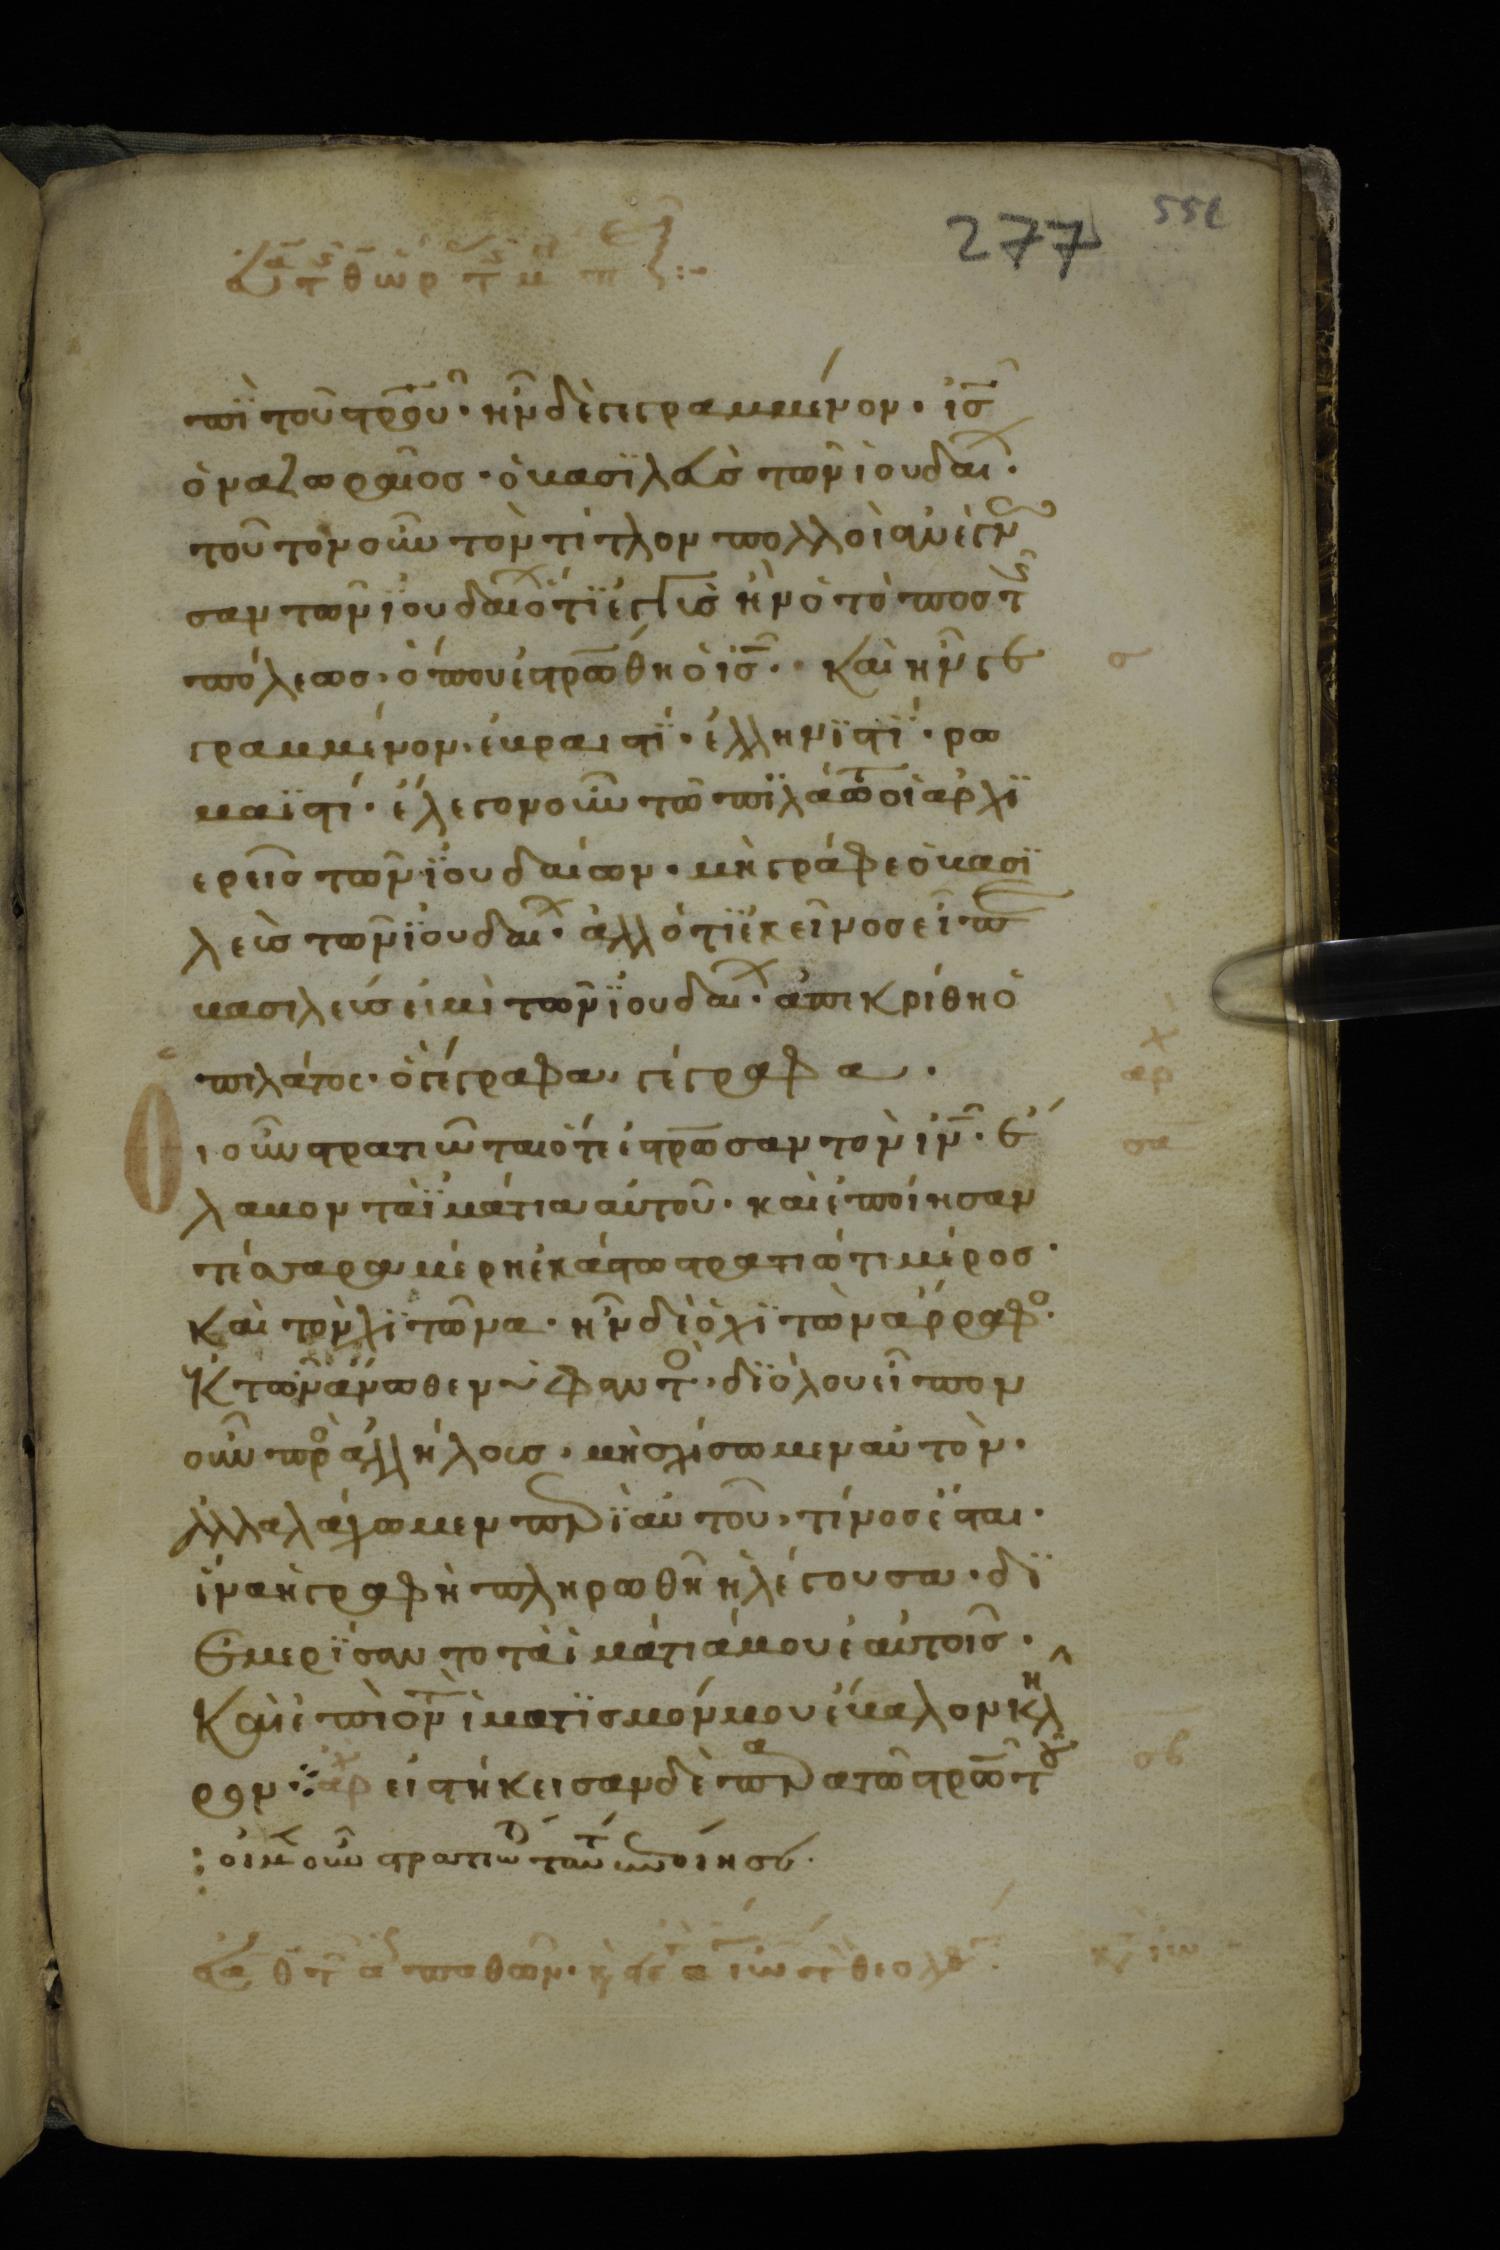 277
πϊ τοῦ στρου̅· ἦν δὲ γεγραμμένον· ι̅ς̅
ὁ ναζωραῖος· ὁ βασϊλεὺς τῶν ἰουδαι·
τοῦτον οὖν τὸν τίτλον πολλοὶ ἀνέγν
σαν τῶν ἰουδαι ὅτι ἐγγὺς ἦν ὁ τόπος τ
πόλεως· ὅπου ἐστρω̅θη ὁ ι̅ς̅· καὶ ἦν γε
γραμμένον· ἑβραιστΐ· ἑλληνϊστΐ· ρω
μαϊστί· ἔλεγον οὖν τῶ πϊλάτω οἱ ἀρχϊ
ερεῖς τῶν ἰουδαίων· μὴ γράφε ὁ βασϊ
λεὺς τῶν ἰουδαι· ἀλλ ὅτι ἐκεῖνος εἶπ
βασιλεύς εἰμὶ τῶν ἰουδαι· ἀπεκρίθη ὁ
πιλάτος· ὃ γέγραφα, γέγραφα.
Ο
ι οὖν στρατιῶται ὅτε ἐστρω̅σαν τὸν ι̅ν̅· ἔ
λαβον τὰ ϊμάτια αὐτοῦ· καὶ ἐποίησαν
τέσσαρα μέρη ἑκάστω στρατιώτι μέρος·
καὶ τὸν χϊτῶνα· ἦν δὲ ὁ χϊτὼν ἄρραφο·
ἐκ τῶν ἄνωθεν ὑφαντο, δϊόλου εἶπον
οὖν πρὸ ἀλλήλους, μὴ σχίσωμεν αὐτὸν·
ἀλλα λάχωμεν περὶ αὐτοῦ, τίνος ἔσται·
ἵνα ἡ γραφὴ πληρωθῆ ἡ λέγουσα· δϊ
εμερΐσαντο τὰ ἱμάτιά μου ἑαυτοῖς·
καὶ ἐπὶ τὸν ἱματϊσμόν μου ἔβαλον κλη
ρον· αρχ εἱστήκεισαν δὲ παρα τῶ στρω̅ τ
οἱ μ οὖν στρατιῶ ταῦτ ἐποίησ·
σ
αρχ
σα
σβ